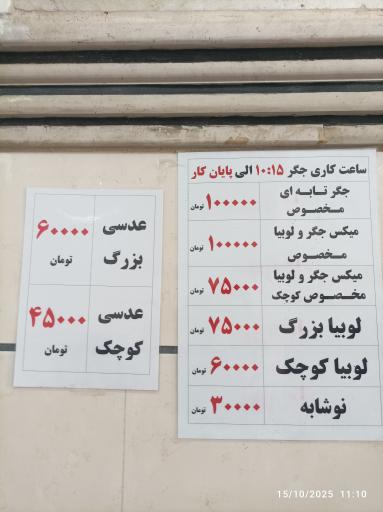 ساعت کاری جگر ۱۰:۱۵ الی پایان کار
جگر تابه ای
مخصوص
۱۰۰۰۰۰ تومان
میکس جگر و لوبیا
مخصوص
۱۰۰۰۰۰ تومان
میکس جگر و لوبیا
مخصوص کوچک
۷۵۰۰۰ تومان
لوبیا بزرگ
۷۵۰۰۰ تومان
لوبیا کوچک
۶۰۰۰۰ تومان
نوشابه
۳۰۰۰۰ تومان
عدسی
بزرگ
۶۰۰۰۰
تومان
عدسی
کوچک
۴۵۰۰۰
تومان
15/10/2025 11:10